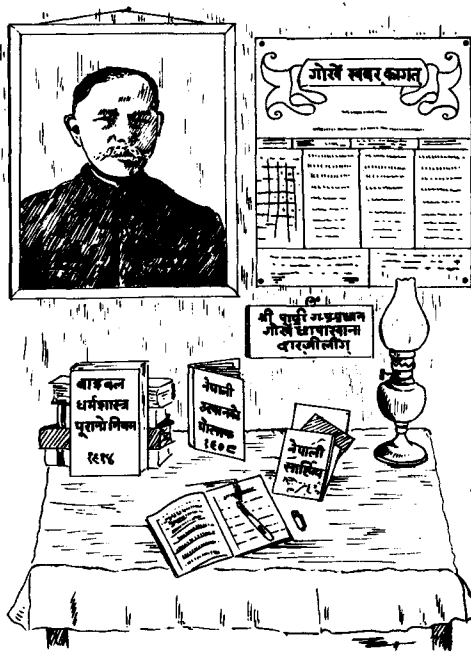 गोर्खे खबर कागत्
श्री पाद्री गङ्गाप्रधान
गोर्खे छापाखाना
दारजीलीग्
बाइबल
धर्मशास्त्र
पूरानो नियम
१९१४
नेपाली
पोस्तक
१९०८
नेपाली
साहित्य